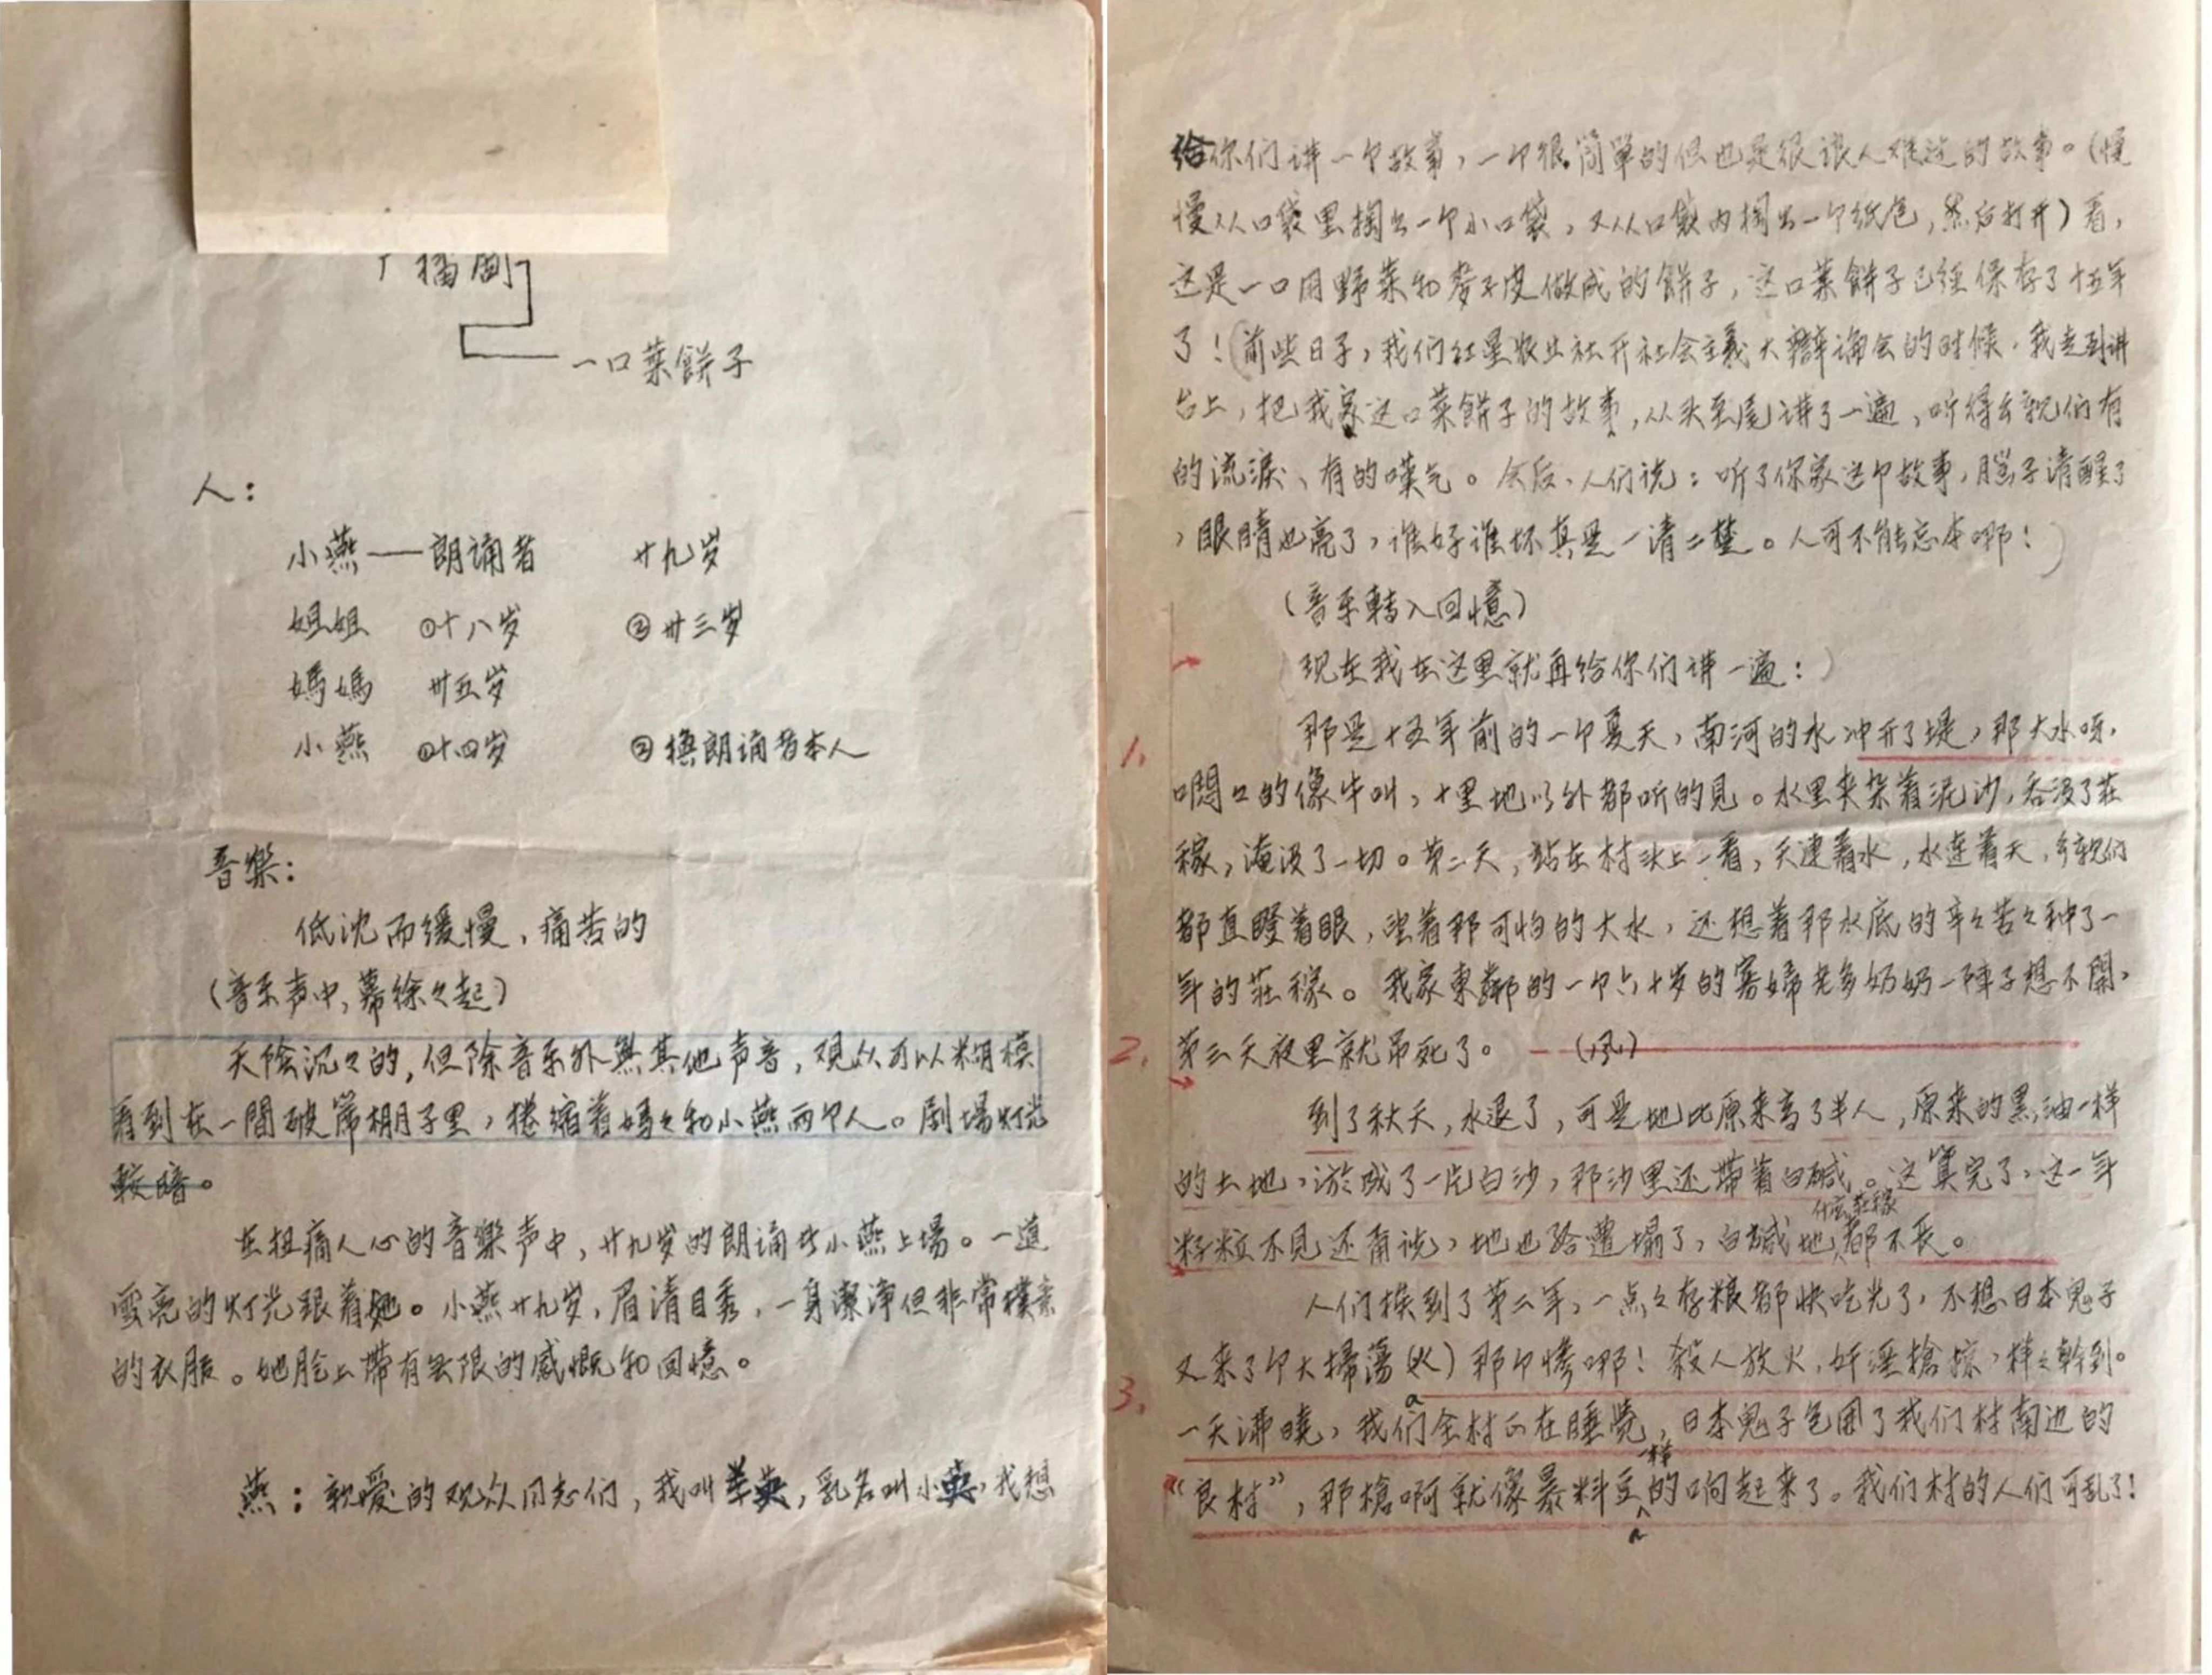 广播剧
一口菜餅子
人：
小燕——朗誦者 廿九岁
姐姐 ①十八岁 ②廿三岁
媽媽 卅五岁
小燕 ①十四岁 ②換朗诵者本人
音樂：
低沈而缓慢，痛苦的
（音乐声中，幕徐々起）
天陰沉々的，但除音乐外無其他声音，观众可以糢模
看到在一間破席棚子里，捲缩着媽々和小燕两个人。剧場灯光
較暗。
在扭痛人心的音樂声中，廿九岁的朗诵者小燕上場。一道
雪亮的灯光跟着她。小燕廿九岁，眉清目秀，一身潔淨但非常樸素
的衣服。她脸上帶有無限的感慨和回憶。
燕：親爱的观众同志们，我叫英，乳名叫小英，我想
给你们讲一个故事，一个很简單的但也是很讓人难过的故事。（慢
慢从口袋里掏出一个小口袋，又从口袋内掏出一个纸包，然后打开）看，
这是一口用野菜和麦子皮做成的餅子，这口菜餅子已经保存了十五年
了！（前些日子，我们红星农业社开社会主義大辯論会的时候，我走到讲
台上，把我家这口菜餅子的故事，从头至尾讲了一遍，听得乡親们有
的流淚、有的嘆气。会后，人们说：听了你家这个故事，腦子清醒了
，眼睛也亮了，谁好谁坏真是一清二楚。人可不能忘本啊！）
（音乐轉入回憶）
（现在我在这里就再给你们讲一遍：）
1. 那是十五年前的一个夏天，南河的水冲开了堤，那大水呀，
嗯々的像牛叫，十里地以外都听的見。水里夹杂着泥沙，吞没了莊
稼，淹没了一切。第二天，站在村头上一看，天連着水，水連着天，乡親们
都直瞪着眼，望着那可怕的大水，还想着那水底的辛々苦々种了一
年的莊稼。我家東鄰的一个六十岁的寡婦老乡奶奶一陣子想不開，
2. 第三天夜里就吊死了。 （风）
到了秋天，水退了，可是地比原来高了半人，原来的黑油一样
的土地，淤成了一片白沙，那沙里还帶着白碱。这算完了，这一年
什么莊稼
籽粒不見还甭说，地也给遭塌了，白碱地都不长。
人们挨到了第二年，一点々存粮都快吃光了，不想日本鬼子
又来了个大掃蕩（火）那个慘啊！殺人放火，奸淫搶掠，样々幹到。
3. 一天沸曉，我们全村正在睡覺，日本鬼子包围了我们村南边的
一样
“良村”，那槍啊就像暴料豆的响起来了。我们村的人们可乱了！